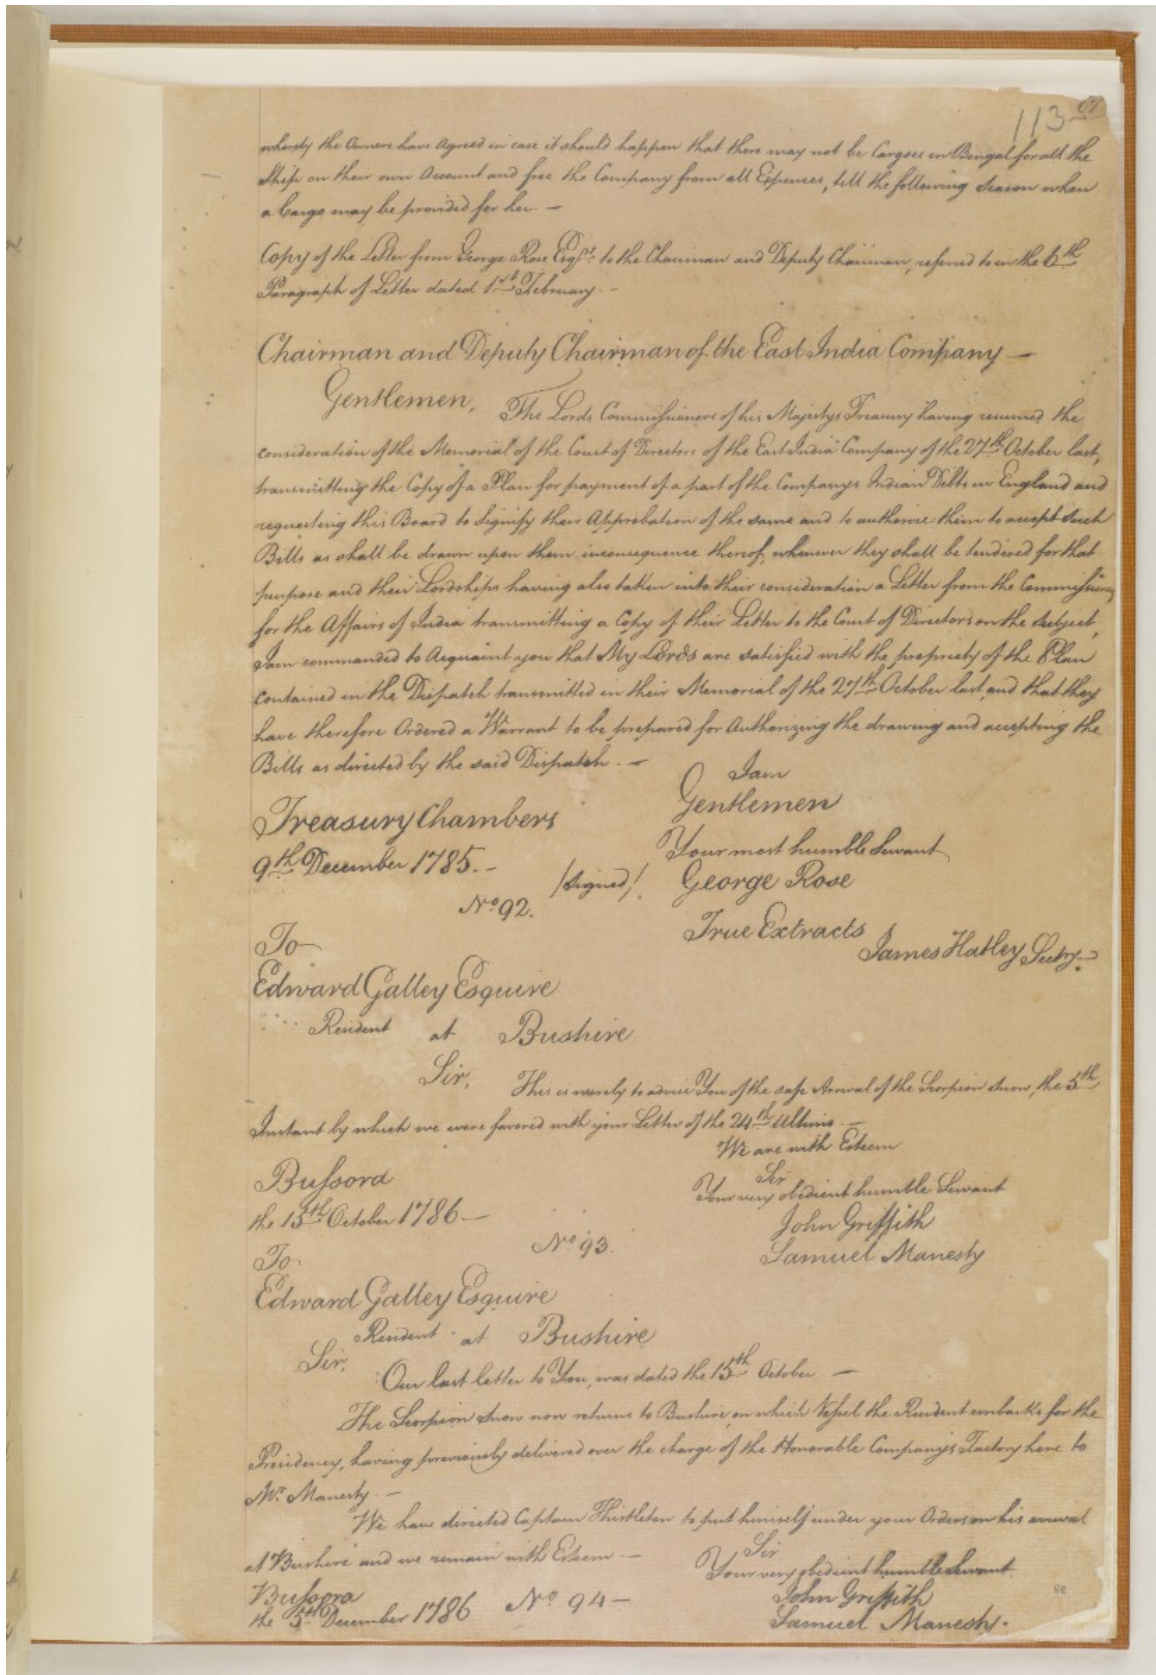 113 67
whereby the Owners have Agreed in case it should happen that there may not be Cargoes in Bengal for all the
Ship on their own Account and free the Company from all Expences, till the following Season when
a Cargo may be provided for her. —
Copy of the Letter from George Rose Esqr. to the Chairman and Deputy Chairman, referred to in the 6th
Paragraph of Letter dated 1st February. —
Chairman and Deputy Chairman of the East India Company —
Gentlemen, The Lords Commissioners of his Majestys Treasury having resumed the
consideration of the Memorial of the Court of Directors of the East India Company of the 27th October last,
transmitting the Copy of a Plan for payment of a part of the Companys Indian Debts in England and
requesting this Board to Signify their Approbation of the same and to authorize them to accept such
Bills as shall be drawn upon them inconsequence thereof, whenever they shall be tendered for that
purpose and their Lordships having also taken into their consideration a Letter from the Commissioners
for the Affairs of India transmitting a Copy of their Letter to the Court of Directors on the Subject,
I am commanded to Acquaint you that My Lords are satisfied with the propriety of the Plan
contained in the Dispatch transmitted in their Memorial of the 27th October last, and that they
have therefore Ordered a Warrant to be prepared for Authorizing the drawing and accepting the
Bills as directed by the said Dispatch. —
I am
Gentlemen
Treasury Chambers
Your most humble Servant
9th December 1785. —
/signed/. George Rose
No. 92.
True Extracts
James Hatley Secty.
To
Edward Galley Esquire
Resident at Bushire
Sir, This is merely to advise You of the safe Arrival of the Scorpion Snow, the 5th
Instant by which we were favored with your Letter of the 24th Ultimo. —
We are with Esteem
Sir
Bussora
Your very obedient humble Servant
the 15th October 1786 —
John Griffith
No. 93.
Samuel Manesty
To
Edward Galley Esquire
Resident at Bushire
Sir, Our last letter to You, was dated the 15th October —
The Scorpion Snow now returns to Bushire, on which Vessel the Resident embarks for the
Presidency, having previously delivered over the charge of the Honorable Company's Factory here to
Mr. Manesty. —
We have directed Captain Thistleton to put himself under your Orders on his arrival
at Bushire and we remain with Esteem. —
Sir
Your very obedient humble Servant
Bussora
the 5th December 1786 No. 94 —
John Griffith
Samuel Manesty.